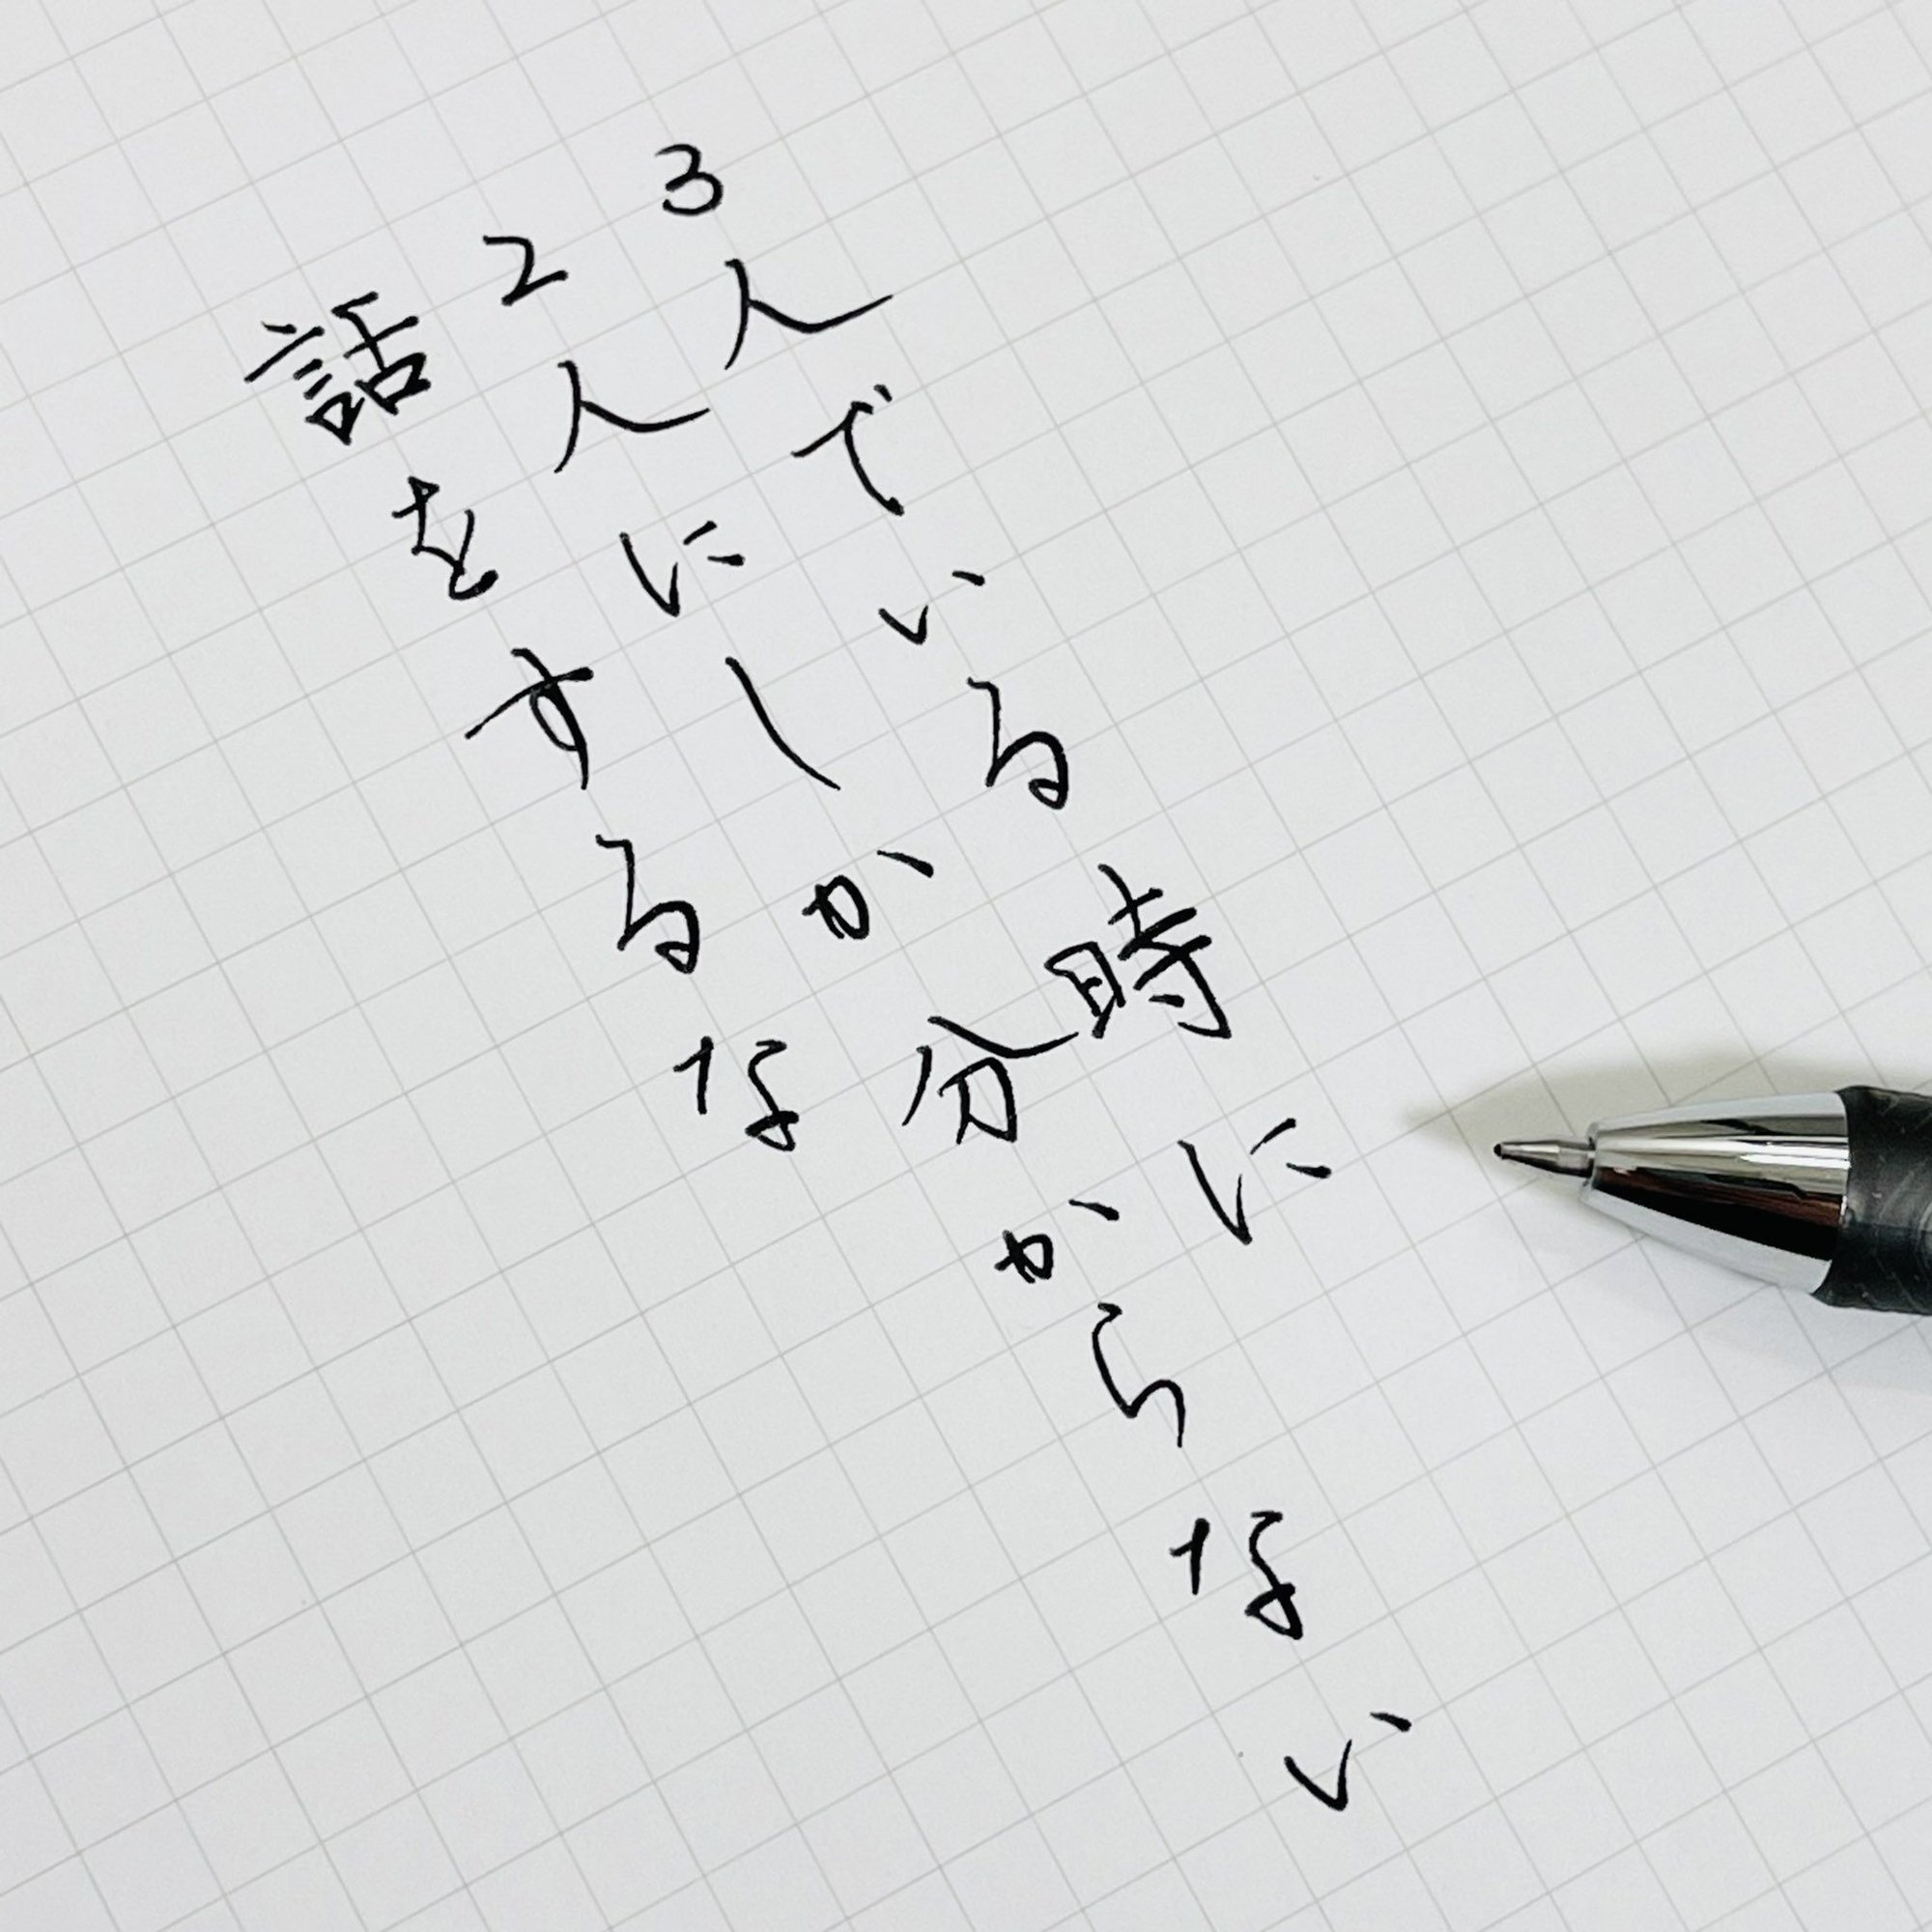 3人でいる時に
2人にしか分からない
話をするな